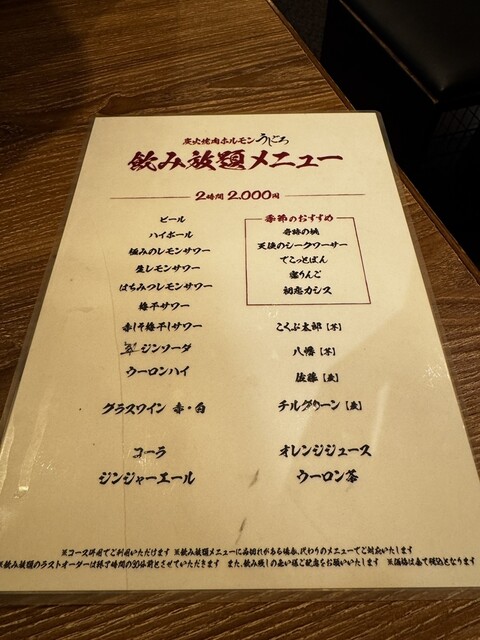 炭火焼肉ホルモン うしごろ
飲み放題メニュー
2時間 2.000円
ビール
ハイボール
極みのレモンサワー
生レモンサワー
はちみつレモンサワー
梅干サワー
赤しそ梅干しサワー
翠ジンソーダ
ウーロンハイ
グラスワイン 赤・白
コーラ
ジンジャーエール
季節のおすすめ
奇跡の桃
天使のシークワーサー
でこっとぽん
蜜りんご
初恋カシス
こくぶ太郎【芋】
八幡【芋】
佐藤【麦】
チルグリーン【麦】
オレンジジュース
ウーロン茶
※コース併用でご利用いただけます ※飲み放題メニューに品切れがある場合、代わりのメニューでご対応いたします
※飲み放題のラストオーダーは終了時間の30分前とさせていただきます また、飲み残しの無い様ご配慮をお願いいたします ※価格は全て税込となります